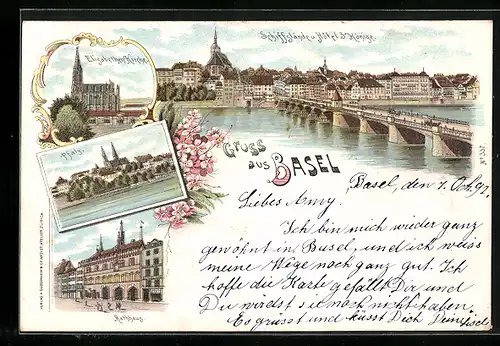 Elisabethen Kirche
Schifflände u. Hôtel 3 Könige.
Pfalz
Gruss
aus BASEL
No 337.
Rathhaus.
Basel, den 1. Oct. 97.
Liebes Amy.
Ich bin mich wieder ganz
gewöhnt in Basel, und ich weiss
meine Wege noch ganz gut. Ich
hoffe die Karte gefällt Dir und
Du wirdst sie noch nicht haben.
Es grüsst und küsst Dich Deine